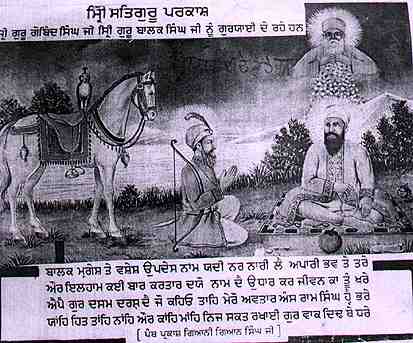 ਸ੍ਰੀ ਸਤਿਗੁਰੂ ਪਰਕਾਸ਼
ਸ੍ਰੀ ਗੁਰੂ ਗੋਬਿੰਦ ਸਿੰਘ ਜੀ ਸ੍ਰੀ ਗੁਰੂ ਬਾਲਕ ਸਿੰਘ ਜੀ ਨੂੰ ਗੁਰਯਾਈ ਦੇ ਰਹੇ ਹਨ
ਬਾਲਕ ਮ੍ਰਿਗੇਸ ਤੇ ਵਸ਼ੇਸ਼ ਉਪਦੇਸ ਨਾਮ ਯਦੀ ਨਰ ਨਾਰੀ ਲੈ ਅਪਾਰੀ ਭਵ ਤੇ ਤਰੇ
ਔਰ ਇਲਹਾਮ ਕਈ ਬਾਰ ਕਰਤਾਰ ਦਯੋ ਨਾਮ ਦੇ ਉਧਾਰ ਕਰ ਜੀਵਨ ਕਾ ਤੂੰ ਖਰੇ
ਐਪੈ ਗੁਰ ਦਸਮ ਦਰਸ਼ ਦੈ ਜੋ ਕਹਿਓ ਤਾਹਿ ਮੇਰੋ ਅਵਤਾਰ ਅੰਸ ਰਾਮ ਸਿੰਘ ਹ੍ਵੈ ਭਰੇ
ਯਾਂਹਿ ਹਿਤ ਤਾਂਹਿ ਨਾਂਹਿ ਔਰ ਕਾਂਹਿ ਮਾਂਹਿ ਨਿਜ ਸਕਤ ਰਖਾਈ ਗੁਰ ਵਾਕ ਦਿਢ ਥੇ ਧਰੇ
( ਪੰਥ ਪ੍ਰਕਾਸ਼ ਗਿਆਨੀ ਗਿਆਨ ਸਿੰਘ ਜੀ )